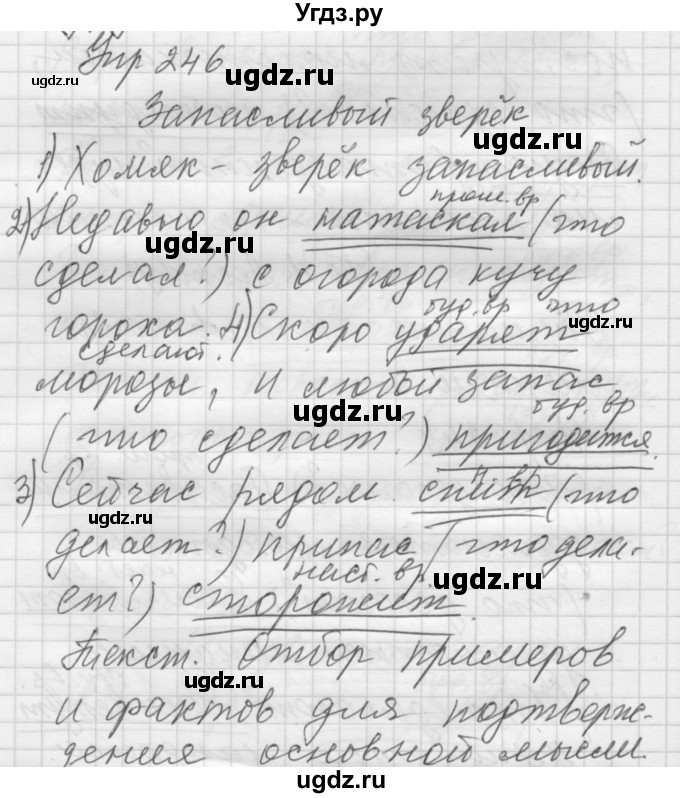 Угдз.ру
Упр 246
Запасливый зверёк
1) Хомяк – зверёк запасливый.
прош. вр
2) Недавно он натаскал (что
сделал?) с огорода кучу
буд. вр что
гороха. 4) Скоро ударят
сделают?
морозы, и любой запас
буд. вр
(что сделает?) пригодится.
н. вр
3) Сейчас рядом спит (что
делает?) припас (что дела-
наст. вр
ет?) сторожит.
Текст. Отбор примеров
и фактов для подтверж-
дения основной мысли.
ugdz.ru
ugdz.ru
ugdz.ru
ugdz.ru
ugdz.ru
ugdz.ru
ugdz.ru
ugdz.ru
ugdz.ru
ugdz.ru
ugdz.ru
ugdz.ru
ugdz.ru
ugdz.ru